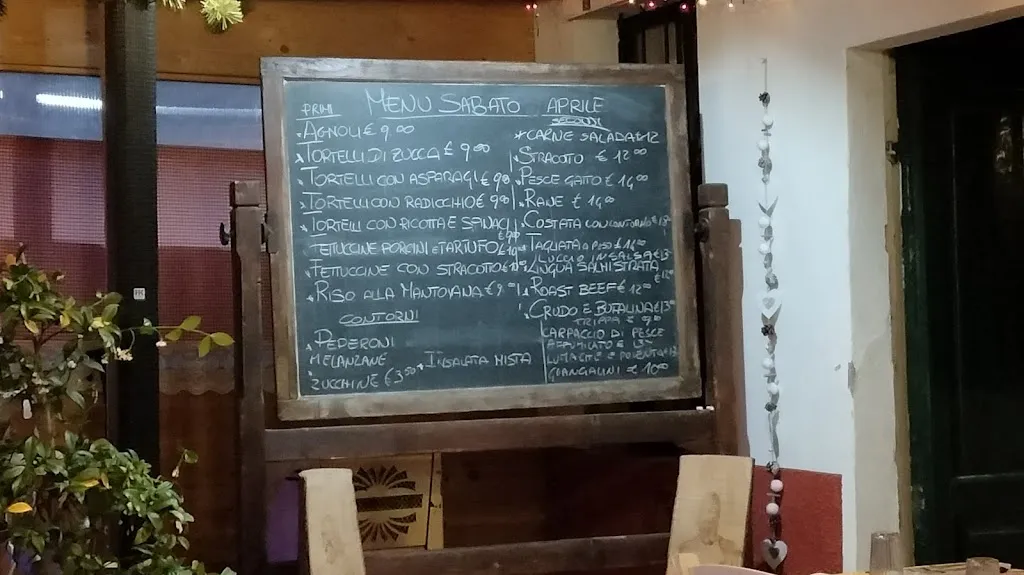 MENU SABATO APRILE
PRIMI
AGNOLI € 9,00
TORTELLI DI ZUCCA € 9,00
TORTELLI CON ASPARAGI € 9,00
TORTELLI CON RADICCHIO € 9,00
TORTELLI CON RICOTTA E SPINACI
FETUCCINE PORCINI E TARTUFO
FETTUCCINE CON STRACOTTO
RISO ALLA MANTOVANA € 9,00
CONTORNI
PEDERONI
MELANZANE
ZUCCHINE € 3,50
INSALATA MISTA
SECONDI
CARNE SALADA € 12
STRACOTTO € 12,00
PESCE GATTO € 14,00
RANE € 14,00
COSTATA CON CONTORNO
TAGLIATA A PESO € 14,00
LUCCIO IN SALSA € 13
LINGUA SALMISTRATA
ROAST BEEF € 12,00
CRUDO E BUFALINA € 13,00
TRIPPA € 9,00
CARPACCIO DI PESCE
AFFUMICATO € 13
LUMACHE E POLENTA € 13
GIANGALINI € 10,00